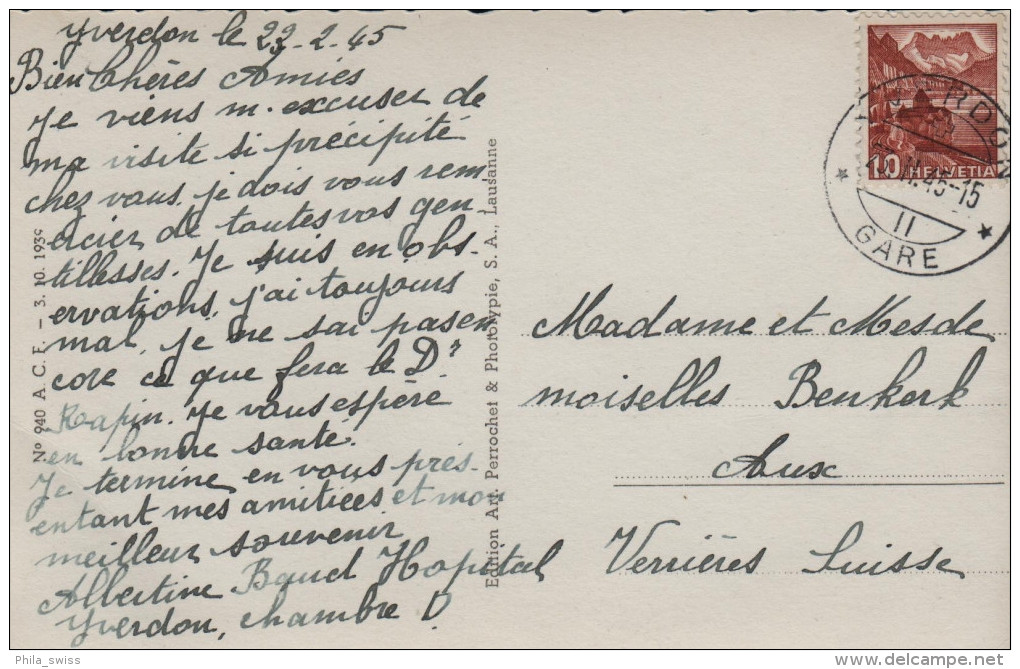 Yverdon le 23-2-45
Bien Chères Amies
Je viens m'excuser de
ma visite si précipité
chez vous, je dois vous rem
ercier de toutes vos gen
tillesses. Je suis en obs-
ervations, j'ai toujours
mal, je ne sai pas en
core ce que fera le Dr
Rapin. Je vous espère
en bonne santé.
Je termine en vous prés-
entant mes amitiées et mon
meilleur souvenir
Albertine Baud Hopital
Yverdon, chambre D.
No 940 A. C. F. – 3. 10. 1939
Edition Art. Perrochet & Phototypie, S. A., Lausanne
10 HELVETIA
II
GARE
Madame et Mesde
moiselles Benkerk
Aux
Verrières Suisse
Phila_swiss
http://www.delcampe.net